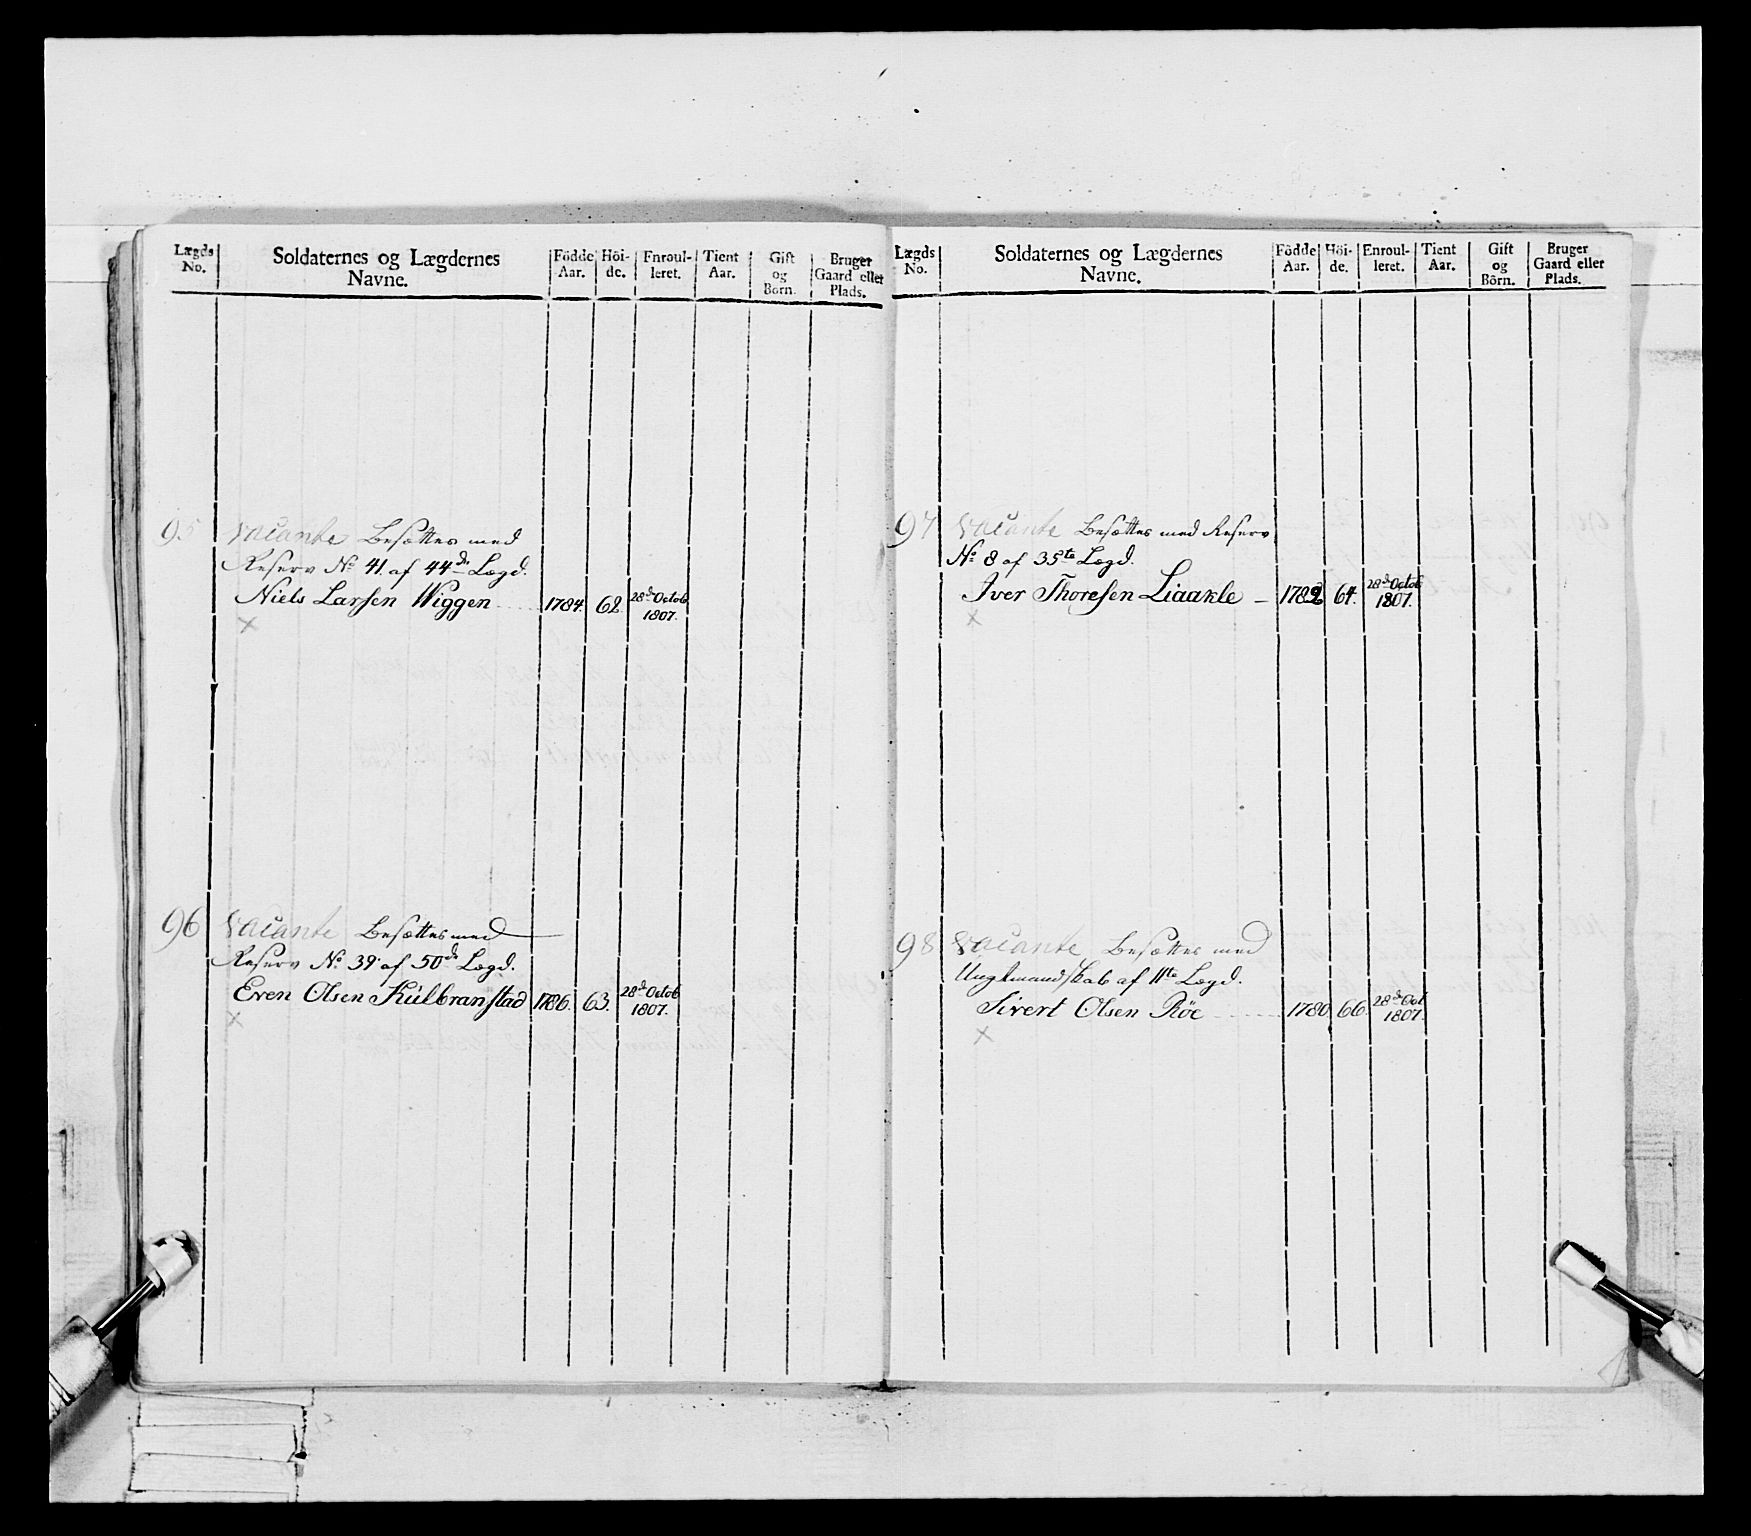 Lægds No. Soldaternes og Lægdernes Navne. Födde Aar. Höide. Enroulleret. Tient Aar. Gift og Börn. Bruger Gaard eller Plads.
95 Vacante Besættes med
Reserv No 41. af 44de Lægd.
Niels Larsen Wiggen 1784. 62. 28de Octob 1807.
×
96 Vacante Besættes med
Reserv No 39. af 50de Lægd.
Even Olsen Kúlbranstad 1786. 63. 28de Octob 1807.
×
Lægds No. Soldaternes og Lægdernes Navne. Födde Aar. Höide. Enroulleret. Tient Aar. Gift og Börn. Bruger Gaard eller Plads.
97 Vacante Besættes med Reserv
No 8 af 35te Lægd.
Iver Thoresen Liaakle 1782 64. 28de Octob 1807.
×
98 Vacante Besættes med
Ungtmandskab af 11te Lægd.
Sivert Olsen Röe 1780. 66. 28de Oct 1807.
×